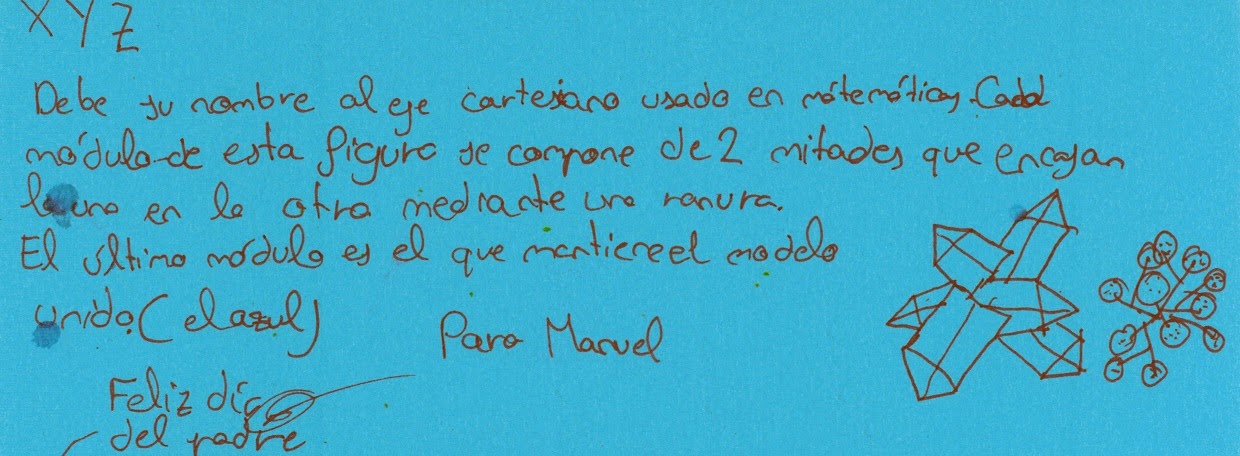 XYZ
Debe su nombre al eje cartesiano usado en matemáticas. Cada
módulo de esta figura se compone de 2 mitades que encajan
la una en la otra mediante una ranura.
El último módulo es el que mantiene el modelo
unido. (el azul)
Para Manuel
Feliz día
del padre